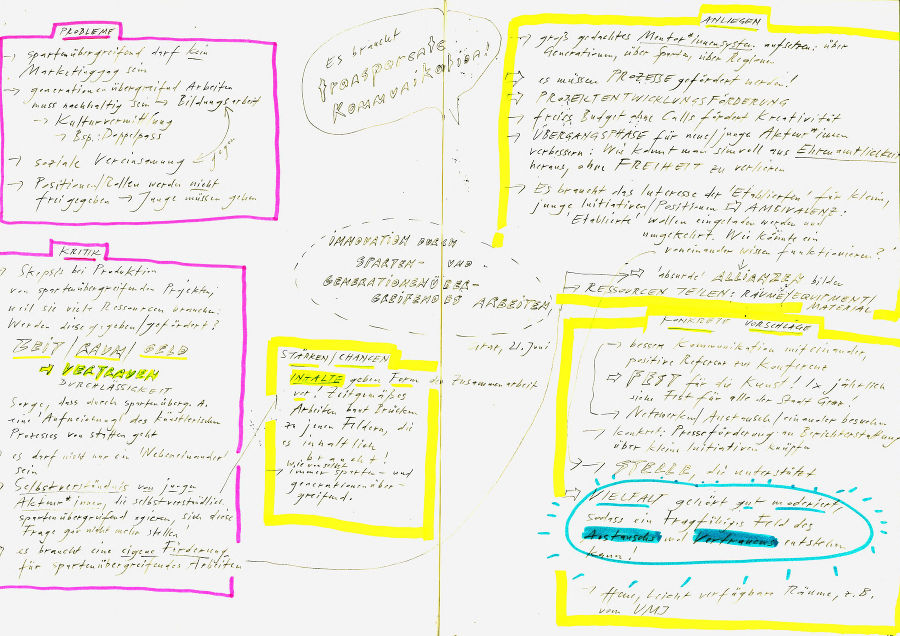 PROBLEME
→ spartenübergreifend darf kein
Marketinggag sein
→ generationenübergreifend Arbeiten
muss nachhaltig sein → Bildungsarbeit
→ Kulturvermittlung
→ Bsp.: Doppelpass
gegen
→ soziale Vereinsamung
→ Positionen/Rollen werden nicht
freigegeben → Junge müssen gehen
Es braucht
transparente
Kommunikation!
ANLIEGEN
→ groß gedachtes Mentor*innensystem aufsetzen: über
Generationen, über Sparten, über Regionen
→ es müssen PROZESSE gefördert werden!
→ PROJEKTENTWICKLUNGSFÖRDERUNG
→ freies Budget ohne Calls fördert Kreativität
→ ÜBERGANGSPHASE für neue/junge Akteur*innen
verbessern: Wie kommt man sinnvoll aus Ehrenamtlichkeit
heraus, ohne FREIHEIT zu verlieren
→ Es braucht das Interesse der 'Etablierten' für kleine,
junge Initiativen/Positionen → AMBIVALENZ:
'Etablierte' wollen eingeladen werden und
umgekehrt. Wie könnte ein
voneinander wissen funktionieren?
→ 'absurde' ALLIANZEN bilden
→ RESSOURCEN TEILEN: RÄUME/EQUIPMENT/
MATERIAL
INNOVATION DURCH
SPARTEN- UND
GENERATIONENÜBER-
GREIFENDES ARBEITEN,
Graz, 21. Juni
KRITIK
→ Skepsis bei Produktion
von spartenübergreifenden Projekten,
weil sie viele Ressourcen brauchen:
Werden diese gegeben/gefördert?
ZEIT/RAUM/GELD
→ VERTRAUEN
DURCHLÄSSIGKEIT
Sorge, dass durch spartenüberg. A.
eine 'Aufweichung' des künstlerischen
Prozesses von statten geht
es darf nicht nur ein Nebeneinander
sein
→ Selbstverständnis von jungen
Akteur*innen, die selbstverständlich
spartenübergreifend agieren, sich diese
Frage gar nicht mehr stellen
→ es braucht eine eigene Förderung
für spartenübergreifendes Arbeiten
STÄRKEN/CHANCEN
INHALTE geben Form der Zusammenarbeit
vor! Zeitgemäßes
Arbeiten baut Brücken
zu jenen Feldern, die
es inhaltlich
braucht!
→ immer sparten- und
generationenüber-
greifend.
KONKRETE VORSCHLÄGE
→ bessere Kommunikation miteinander,
positive Referenz, Konferenz
→ FEST für die Kunst, 1x jährlich
ein Fest für alle der Stadt Graz!
→ Netzwerken/Austauschen/einander besuchen
→ konkret: Presseförderung an Berichterstattung
über kleine Initiativen knüpfen
→ STELLE, die unterstützt
→ VIELFALT gehört gut moderiert,
sodass ein tragfähiges Feld des
Austauschs und Vertrauens entstehen
kann!
→ leicht verfügbare Räume, z.B.
vom UMJ